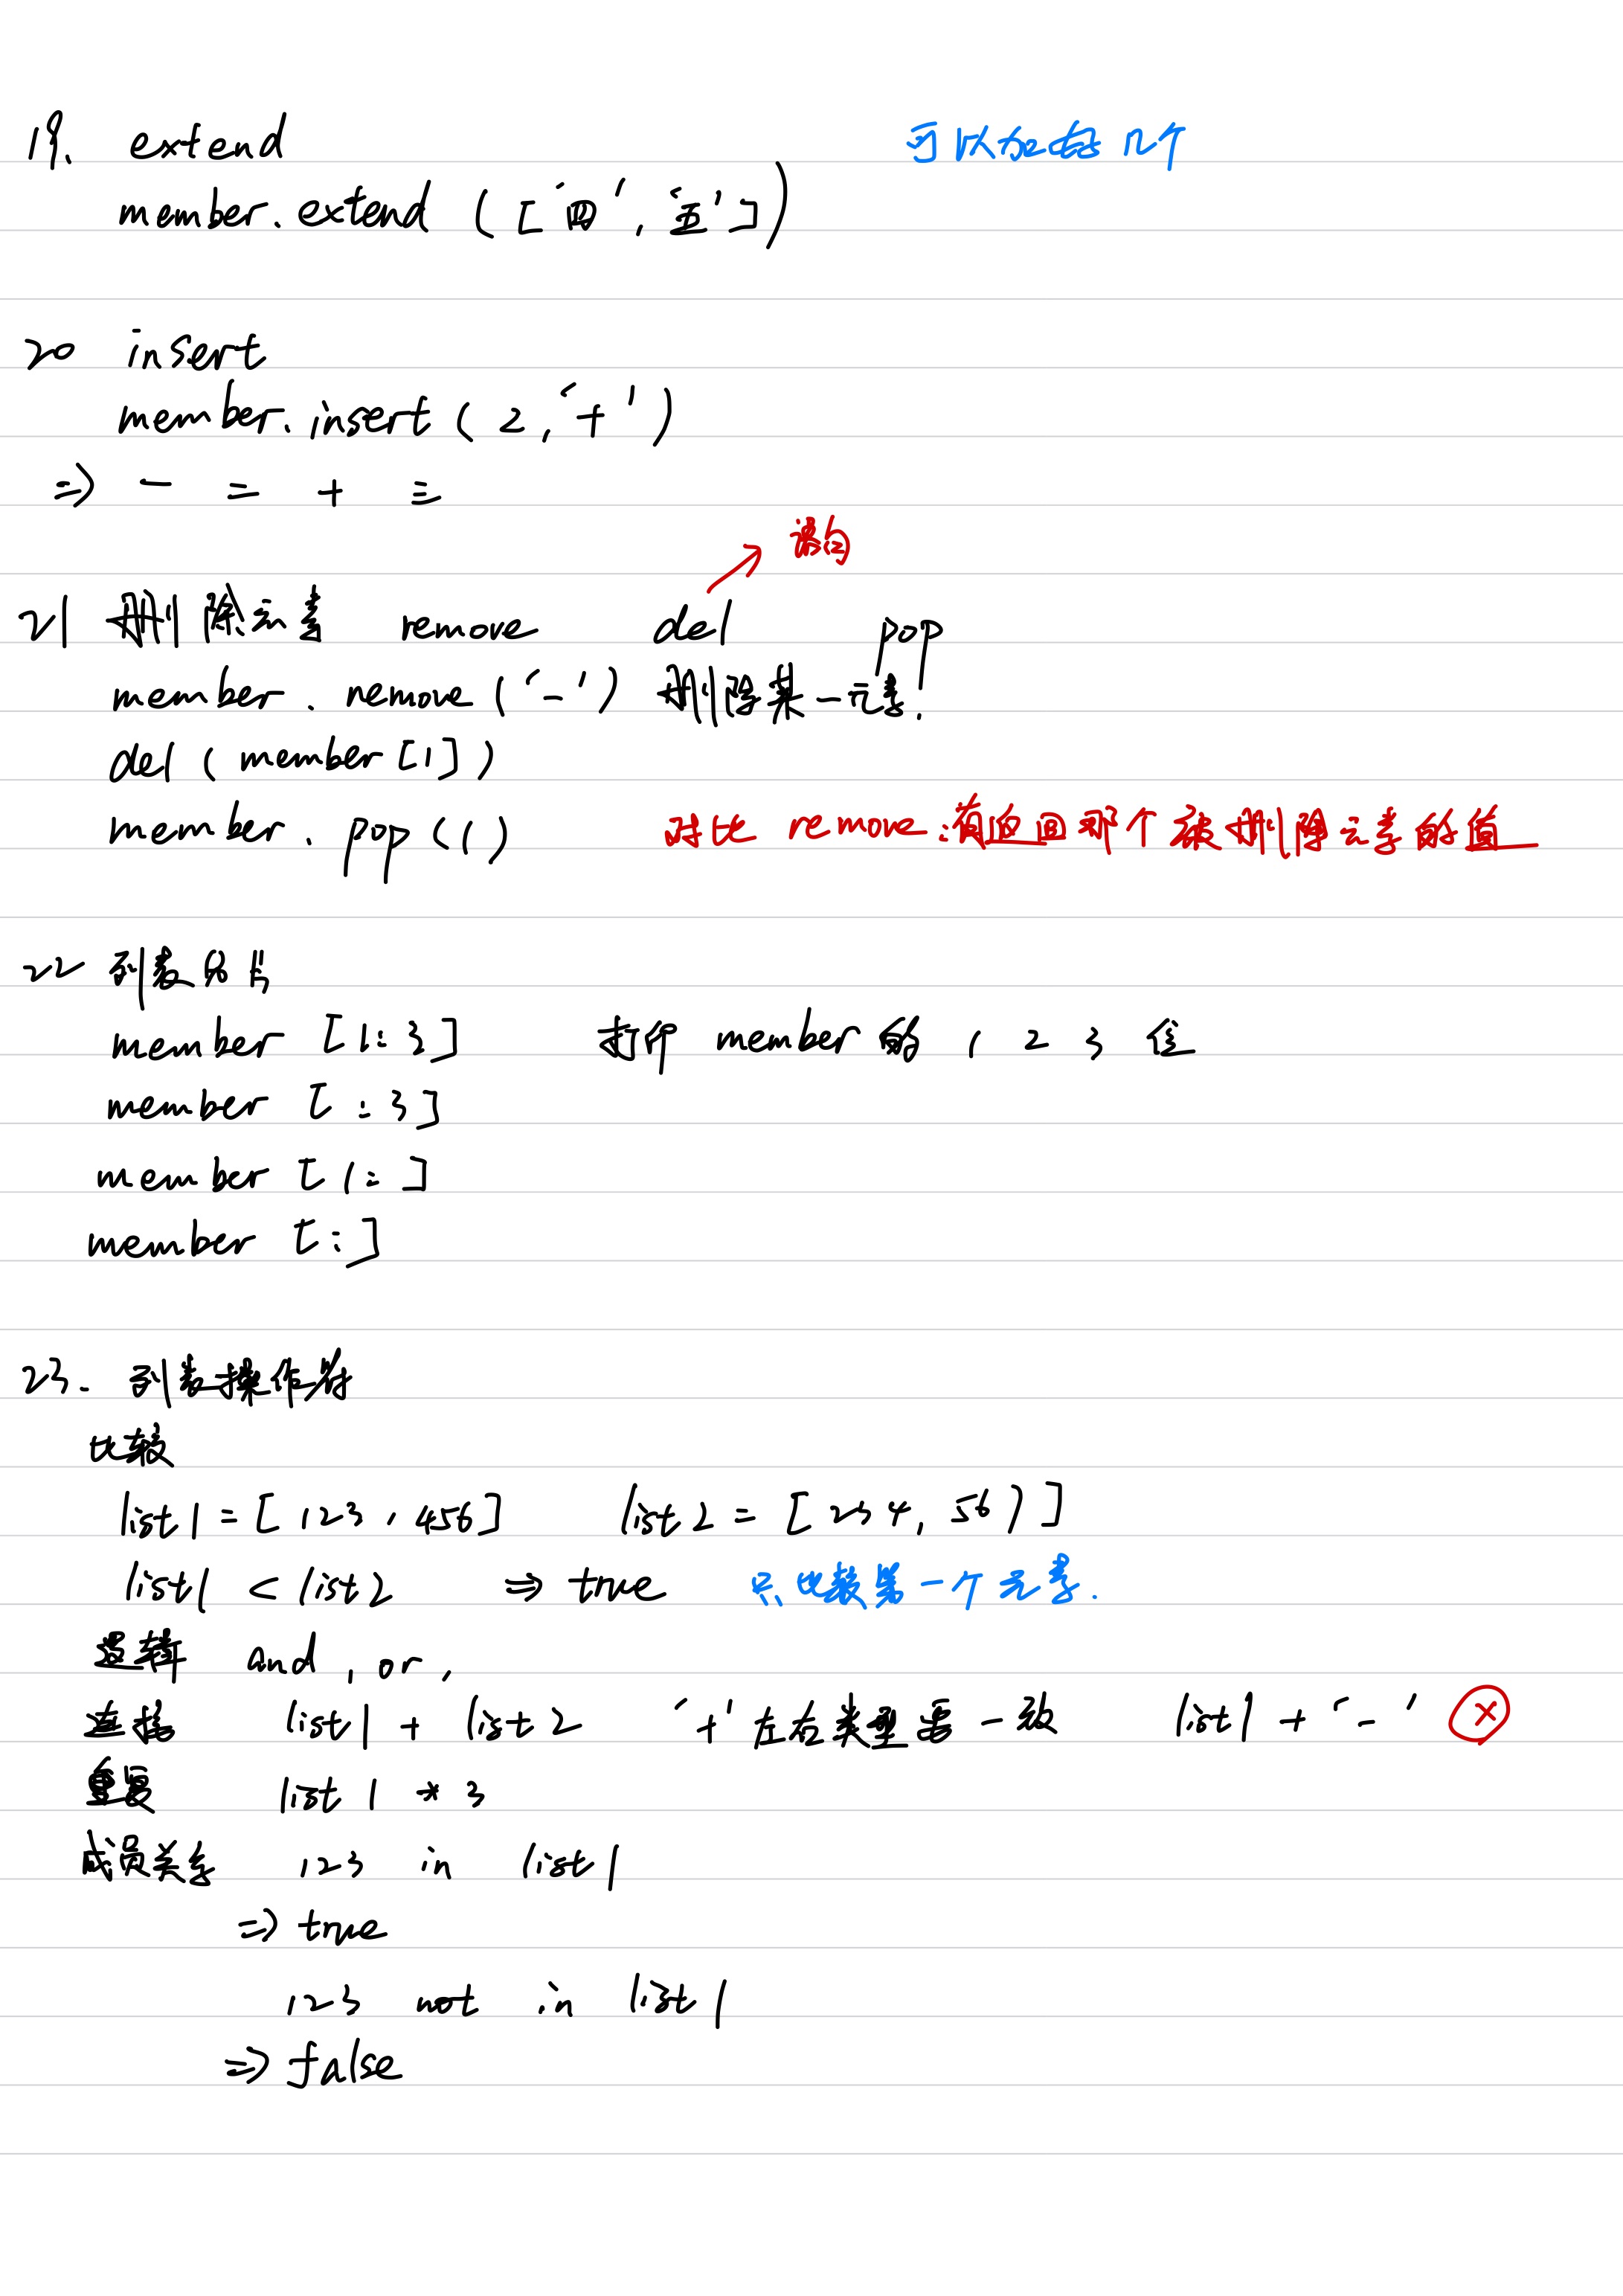 19. extend 可以加好几个
member.extend (['四', '五'])
20 insert
member.insert (2, '+')
⇒ 一 二 + 三
语句
21 删除元素 remove del pop
member.remove ('一') 删除某一元素!
del (member[1])
member.pop (1) 对比 remove:有返回那个被删除元素的值
22 列表分片
member [1:3] 打印 member 的 1 2 3 位
member [:3]
member [1:]
member [:]
23. 列表操作符
比较
list1 = [123, 456] list2 = [234, 567]
list1 < list2 ⇒ true 只比较第一个元素.
逻辑 and, or,
连接 list1 + list2 '+'左右类型要一致 list1 + '一' ×
重复 list1 * 3
成员关系 123 in list1
⇒ true
123 not in list1
⇒ false